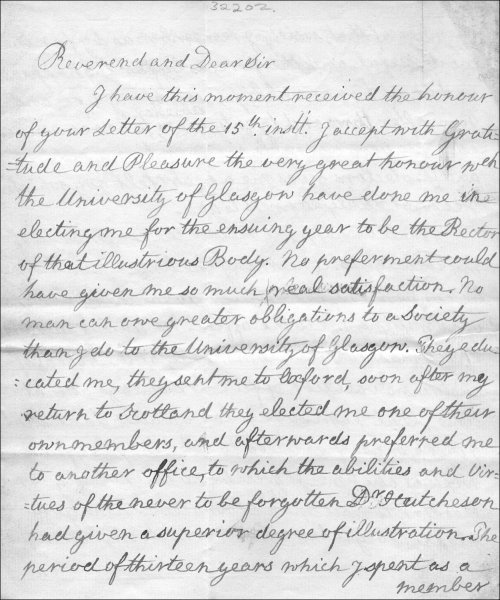 32202.
Reverend and Dear Sir
I have this moment received the honour
of your Letter of the 15th. instt. I accept with Grati-
=tude and Pleasure the very great honour wch
the University of Glasgow have done me in
electing me for the ensuing year to be the Rector
of that illustrious Body. No preferment could
have given me so much real satisfaction. No
man can owe greater obligations to a Society
than I do to the University of Glasgow. They edu
=cated me, they sent me to Oxford, soon after my
return to Scotland they elected me one of their
own members, and afterwards preferred me
to another office, to which the abilities and Vir=
=tues of the never to be forgotten Dr. Hutcheson
had given a superior degree of illustration. The
period of thirteen years which I spent as a
member